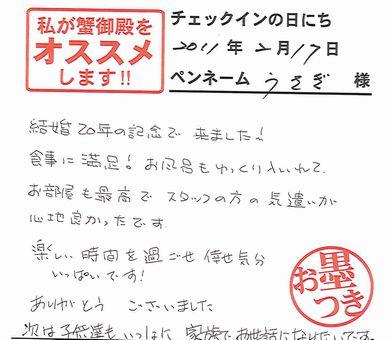 私が蟹御殿を
オススメ
します!!
チェックインの日にち
2011年2月17日
ペンネーム うさぎ 様
結婚20年の記念で 来ました!
食事に満足! お風呂もゆっくり入いれて
お部屋も最高で スタッフの方の気遣いが
心地良かったです
楽しい時間を過ごせ 倖せ気分
いっぱいです!
ありがとう ございました
次は子供達も いっしょに 家族でお世話になりたいです。
お墨つき